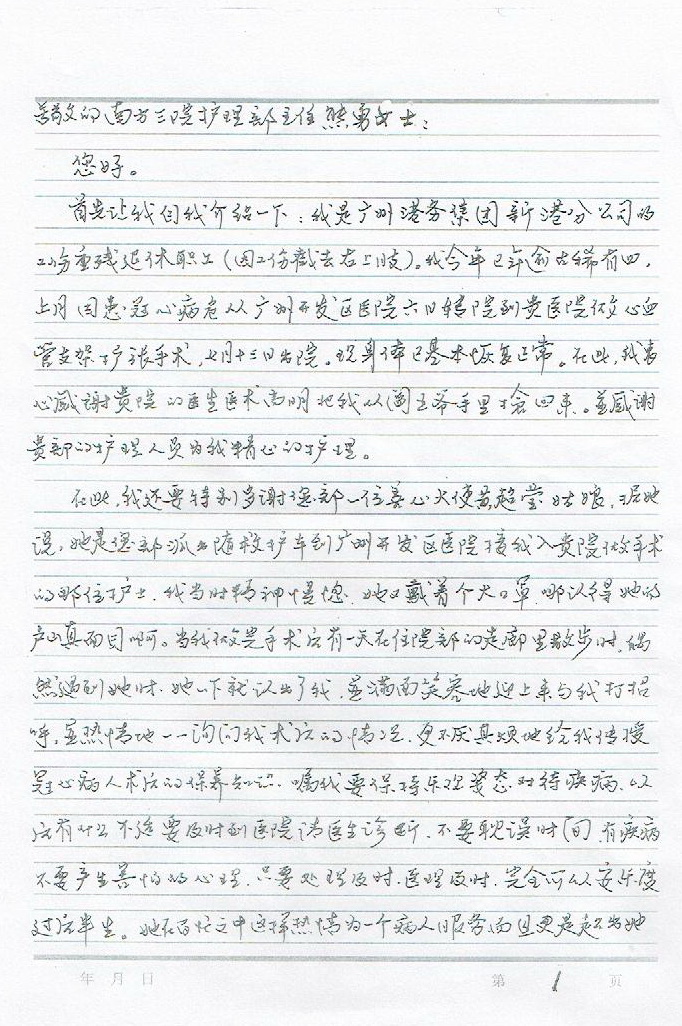 尊敬的南方三院护理部主任熊勇女士：
您好。
首先让我自我介绍一下：我是广州港务集团新港分公司的
工伤重残退休职工（因工伤截去右上肢）。我今年已年逾古稀有四，
上月因患冠心病危从广州开发区医院六日转院到贵医院做心血
管支架扩张手术，七月十三日出院。现身体已基本恢复正常。在此，我衷
心感谢贵院的医生医术高明把我从阎王爷手里抢回来。并感谢
贵部的护理人员为我精心的护理。
在此，我还要特别多谢您部一位美心天使黄超莹姑娘，据她
说，她是您部派出随救护车到广州开发区医院接我入贵院做手术
的那位护士，我当时精神恍惚，她又戴着个大口罩，哪认得她的
庐山真面目啊。当我做完手术后有一天在住院部的走廊里散步时，偶
然遇到她时，她一下就认出了我，并满面笑容地迎上来与我打招
呼，并热情地一一询问我术后的情况，更不厌其烦地给我传授
冠心病人术后的保养知识。嘱我要保持乐观姿态对待疾病，以
后有什么不适要及时到医院请医生诊断，不要耽误时间，有疾病
不要产生害怕的心理，只要处理及时，医理及时，完全可以安乐度
过后半生。她在百忙之中这样热情为一个病人服务而且更是超出她
年 月 日 第 1 页